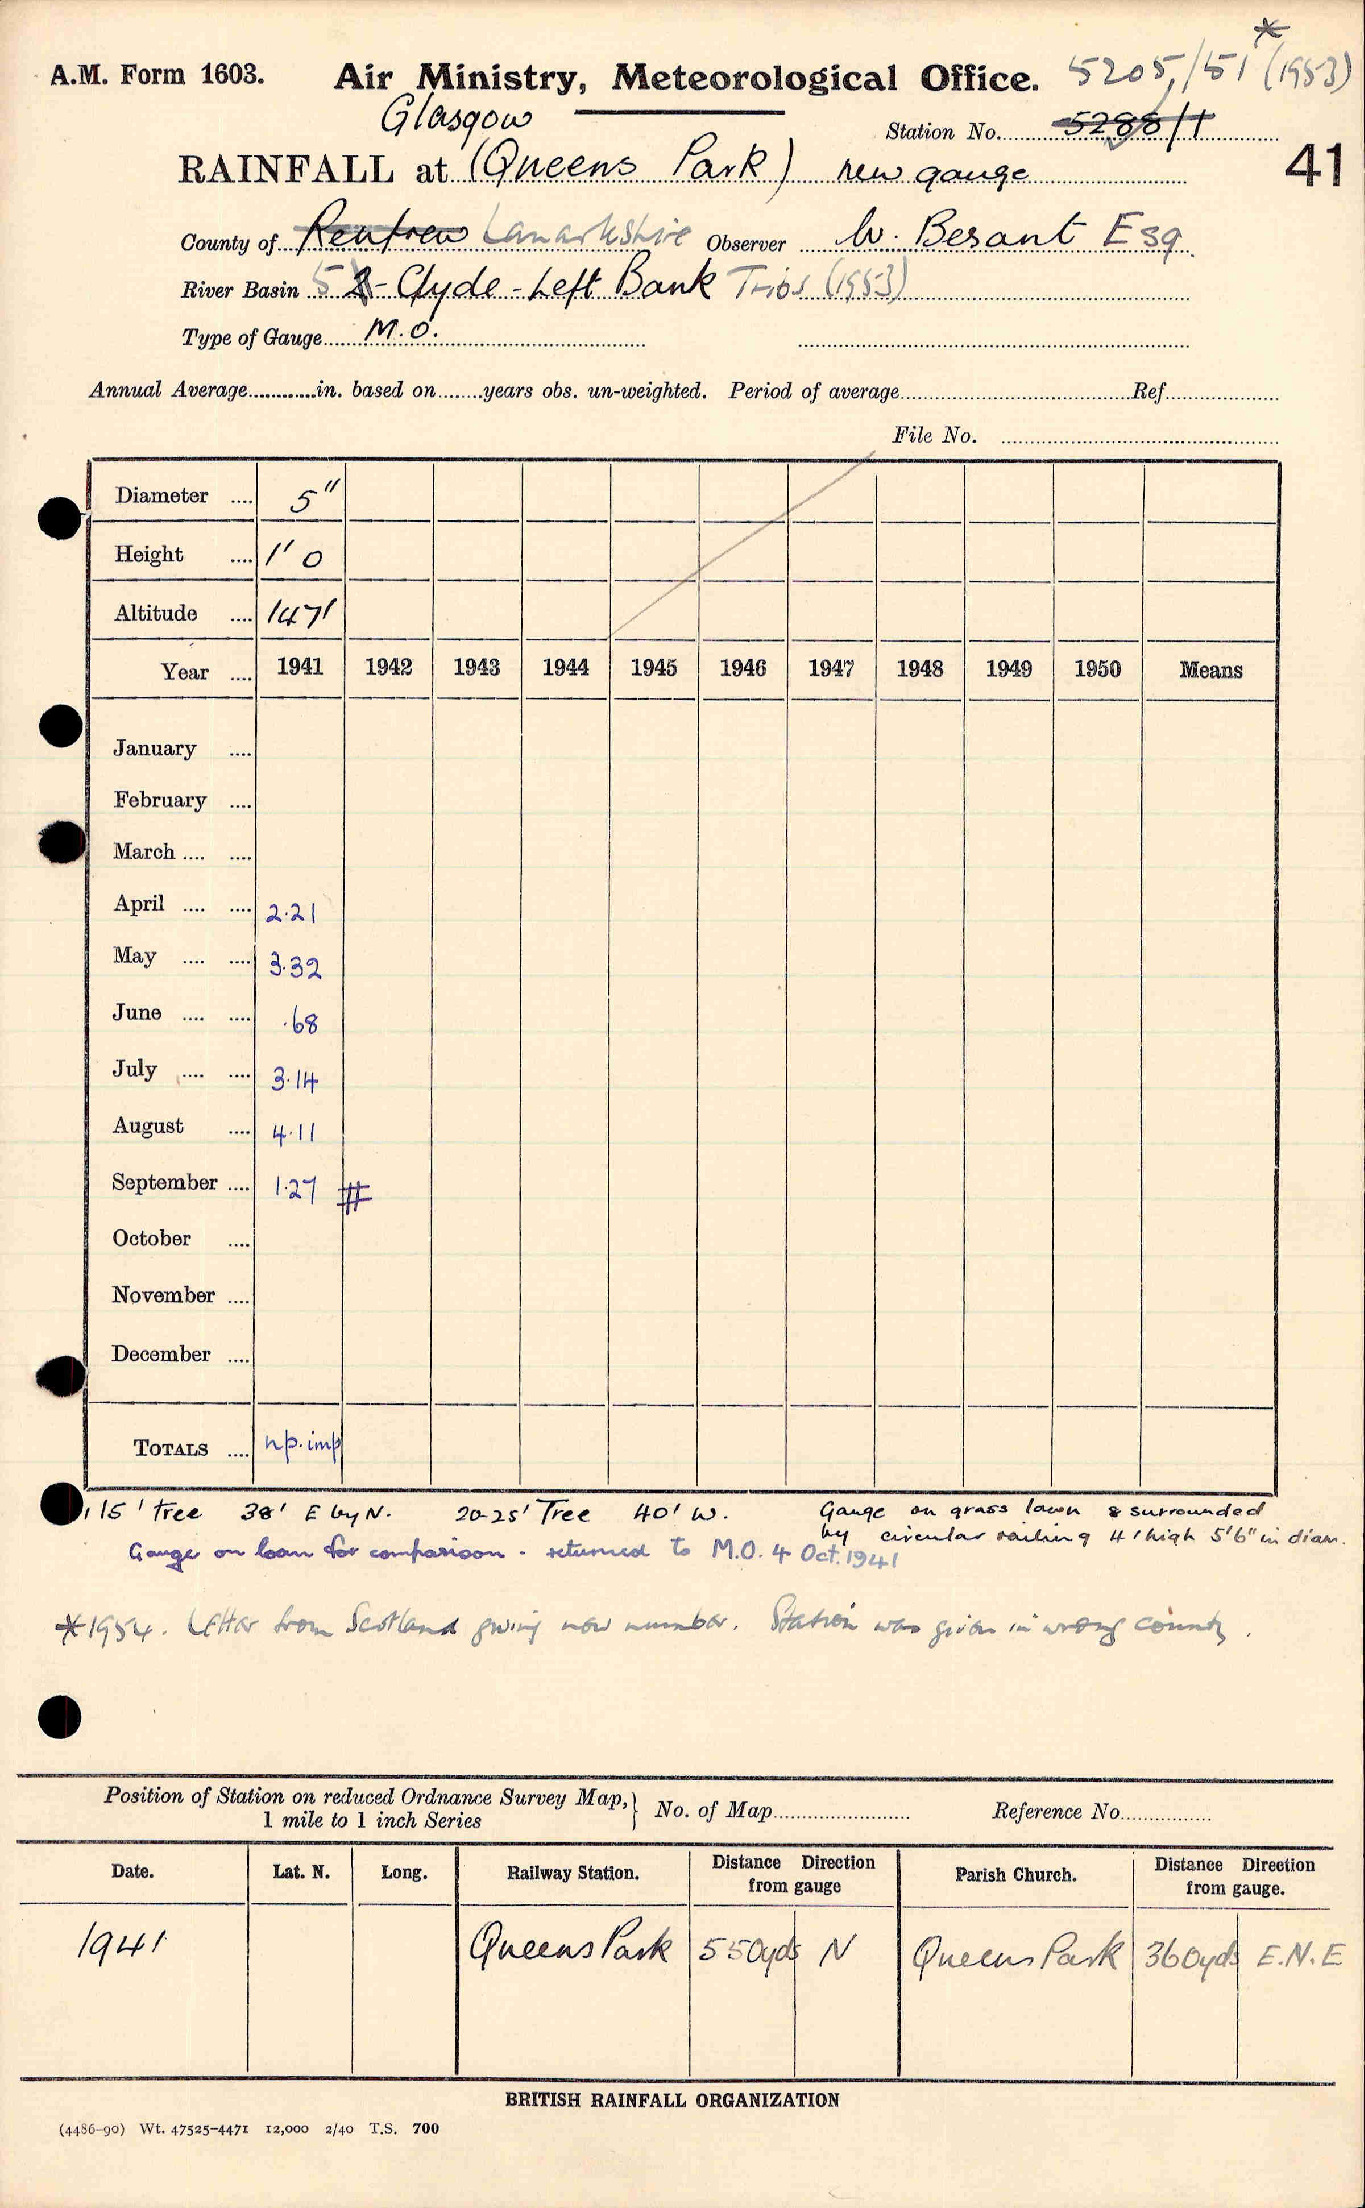 *
A.M. Form 1603. Air Ministry, Meteorological Office. 5205/51 (1953)
Glasgow
Station No. 5288/1
RAINFALL at (Queens Park) new gauge 41
County of Renfrew Lanarkshire Observer W. Besant Esq.
River Basin 5 2 - Clyde - Left Bank Tribs (1953)
Type of Gauge M.O.
Annual Average in. based on years obs. un-weighted. Period of average Ref.
File No.
Diameter 5"
Height 1' 0
Altitude 147'
Year 1941 1942 1943 1944 1945 1946 1947 1948 1949 1950 Means
January
February
March
April 2.21
May 3.32
June .68
July 3.14
August 4.11
September 1.27 #
October
November
December
TOTALS np. imp
15' Tree 38' E by N. 20-25' Tree 40' W. Gauge on grass lawn & surrounded
by circular railing 4' high 5'6" in diam.
Gauge on loan for comparison - returned to M.O. 4 Oct. 1941
* 1954. Letter from Scotland giving new number. Station was given in wrong county.
Position of Station on reduced Ordnance Survey Map,
1 mile to 1 inch Series } No. of Map Reference No.
Date. Lat. N. Long. Railway Station. Distance Direction from gauge Parish Church. Distance Direction from gauge.
1941 Queens Park 550yds N Queens Park 360yds E.N.E
BRITISH RAINFALL ORGANIZATION
(4486-90) Wt. 47525-4471 12,000 2/40 T.S. 700